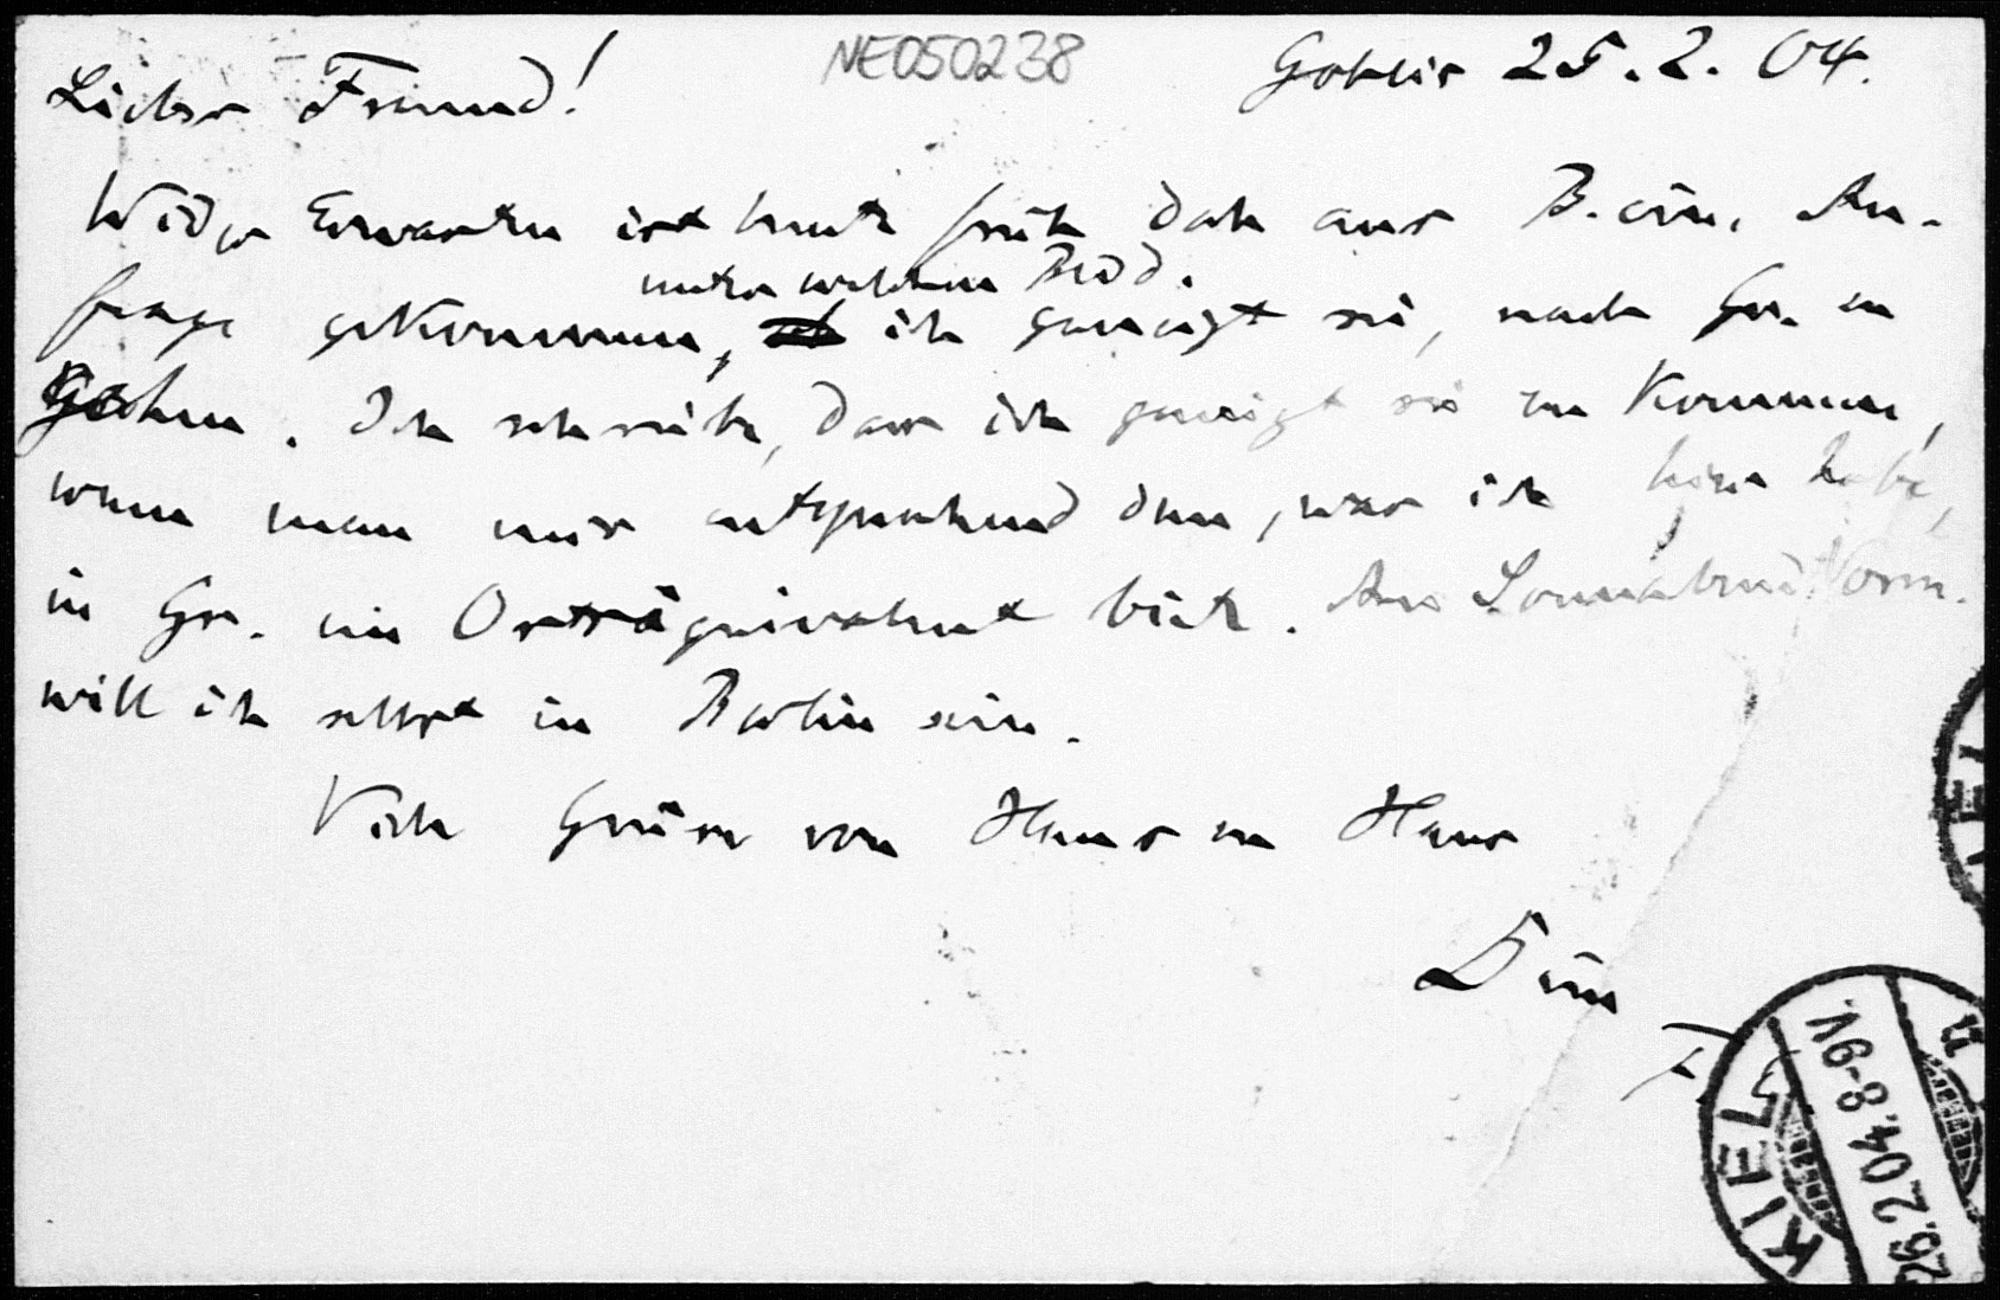 NE050238
Gohlis 25. 2. 04.
Lieber Freund!
Wider Erwarten ist heute früh doch aus B. eine An-
frage gekommen, unter welchen Bedd. ich geneigt sei, nach Gr. zu
gehen. Ich schreibe, dass ich geneigt sei zu kommen,
wenn man mir entsprechend dem, was ich hier habe,
in Gr. ein Ortsäquivalent biete. Am Sonnabend Vorm.
will ich selbst in Berlin sein.
Viele Grüsse von Haus zu Haus
Dein
KIEL
26.2.04. 8-9V.